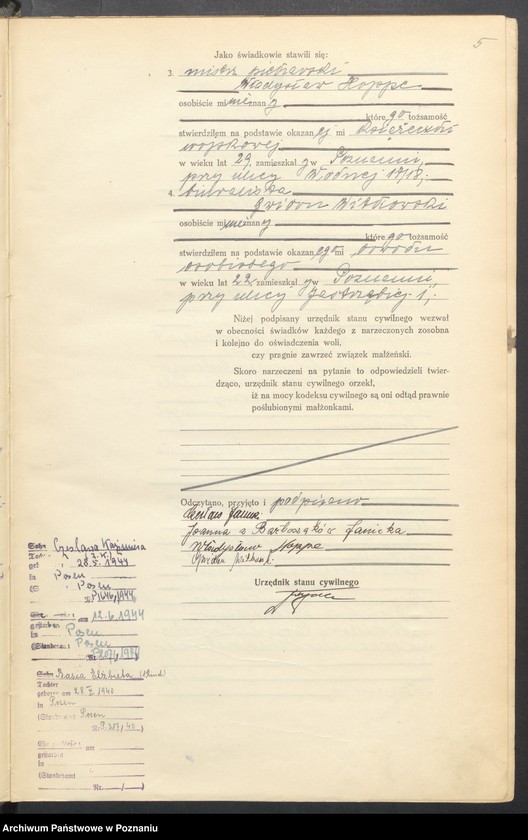 5
Jako świadkowie stawili się:
3. mistrz
Władysław Hoppe
osobiście mi nieznany
którego tożsamość
stwierdziłem na podstawie okazanej mi książeczki
wojskowej
w wieku lat 29 zamieszkały w Poznaniu,
przy ulicy Wodnej 17/18,
4. biuralista
Witkowski
osobiście mi nieznany
którego tożsamość
stwierdziłem na podstawie okazanego mi dowodu
osobistego
w wieku lat 22 zamieszkały w Poznaniu,
przy ulicy Jastrzębiej 1,
Niżej podpisany urzędnik stanu cywilnego wezwał
w obecności świadków każdego z narzeczonych z osobna
i kolejno do oświadczenia woli,
czy pragnie zawrzeć związek małżeński.
Skoro narzeczeni na pytanie to odpowiedzieli twier-
dząco, urzędnik stanu cywilnego orzekł,
iż na mocy kodeksu cywilnego są oni odtąd prawnie
poślubionymi małżonkami.
Odczytano, przyjęto i podpisano
Joanna z Bartoszaków Janicka
Władysław Hoppe
Urzędnik stanu cywilnego
Czesława Kazimiera
28.5.1944
in Posen
Posen
Nr.
am 12.6.1944
gestorben
in Posen
(Standesamt Posen
Nr.
Basia Elżbieta (Kind)
Tochter
geboren am 28 I 1940
in Posen
(Standesamt Posen
Nr. 307/40)
am
gestorben
in
(Standesamt
Nr. / )
Archiwum Państwowe w Poznaniu